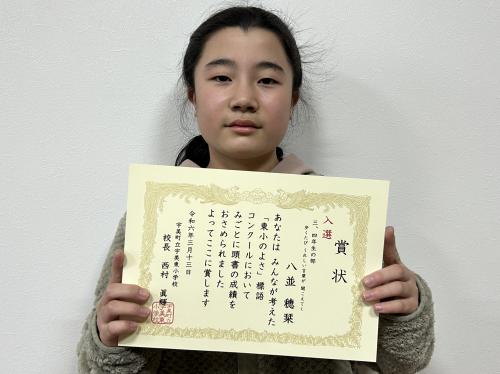 賞状
入選
三、四年生の部
歩くたび うれしい言葉が 聞こえてく
八並 穂栞
あなたは みんなが考えた
「東小のよさ」標語
コンクールにおいて
みごとに頭書の成績を
おさめられました
よってここに賞します
令和六年三月十三日
宇美町立宇美東小学校
校長 西村 眞輝